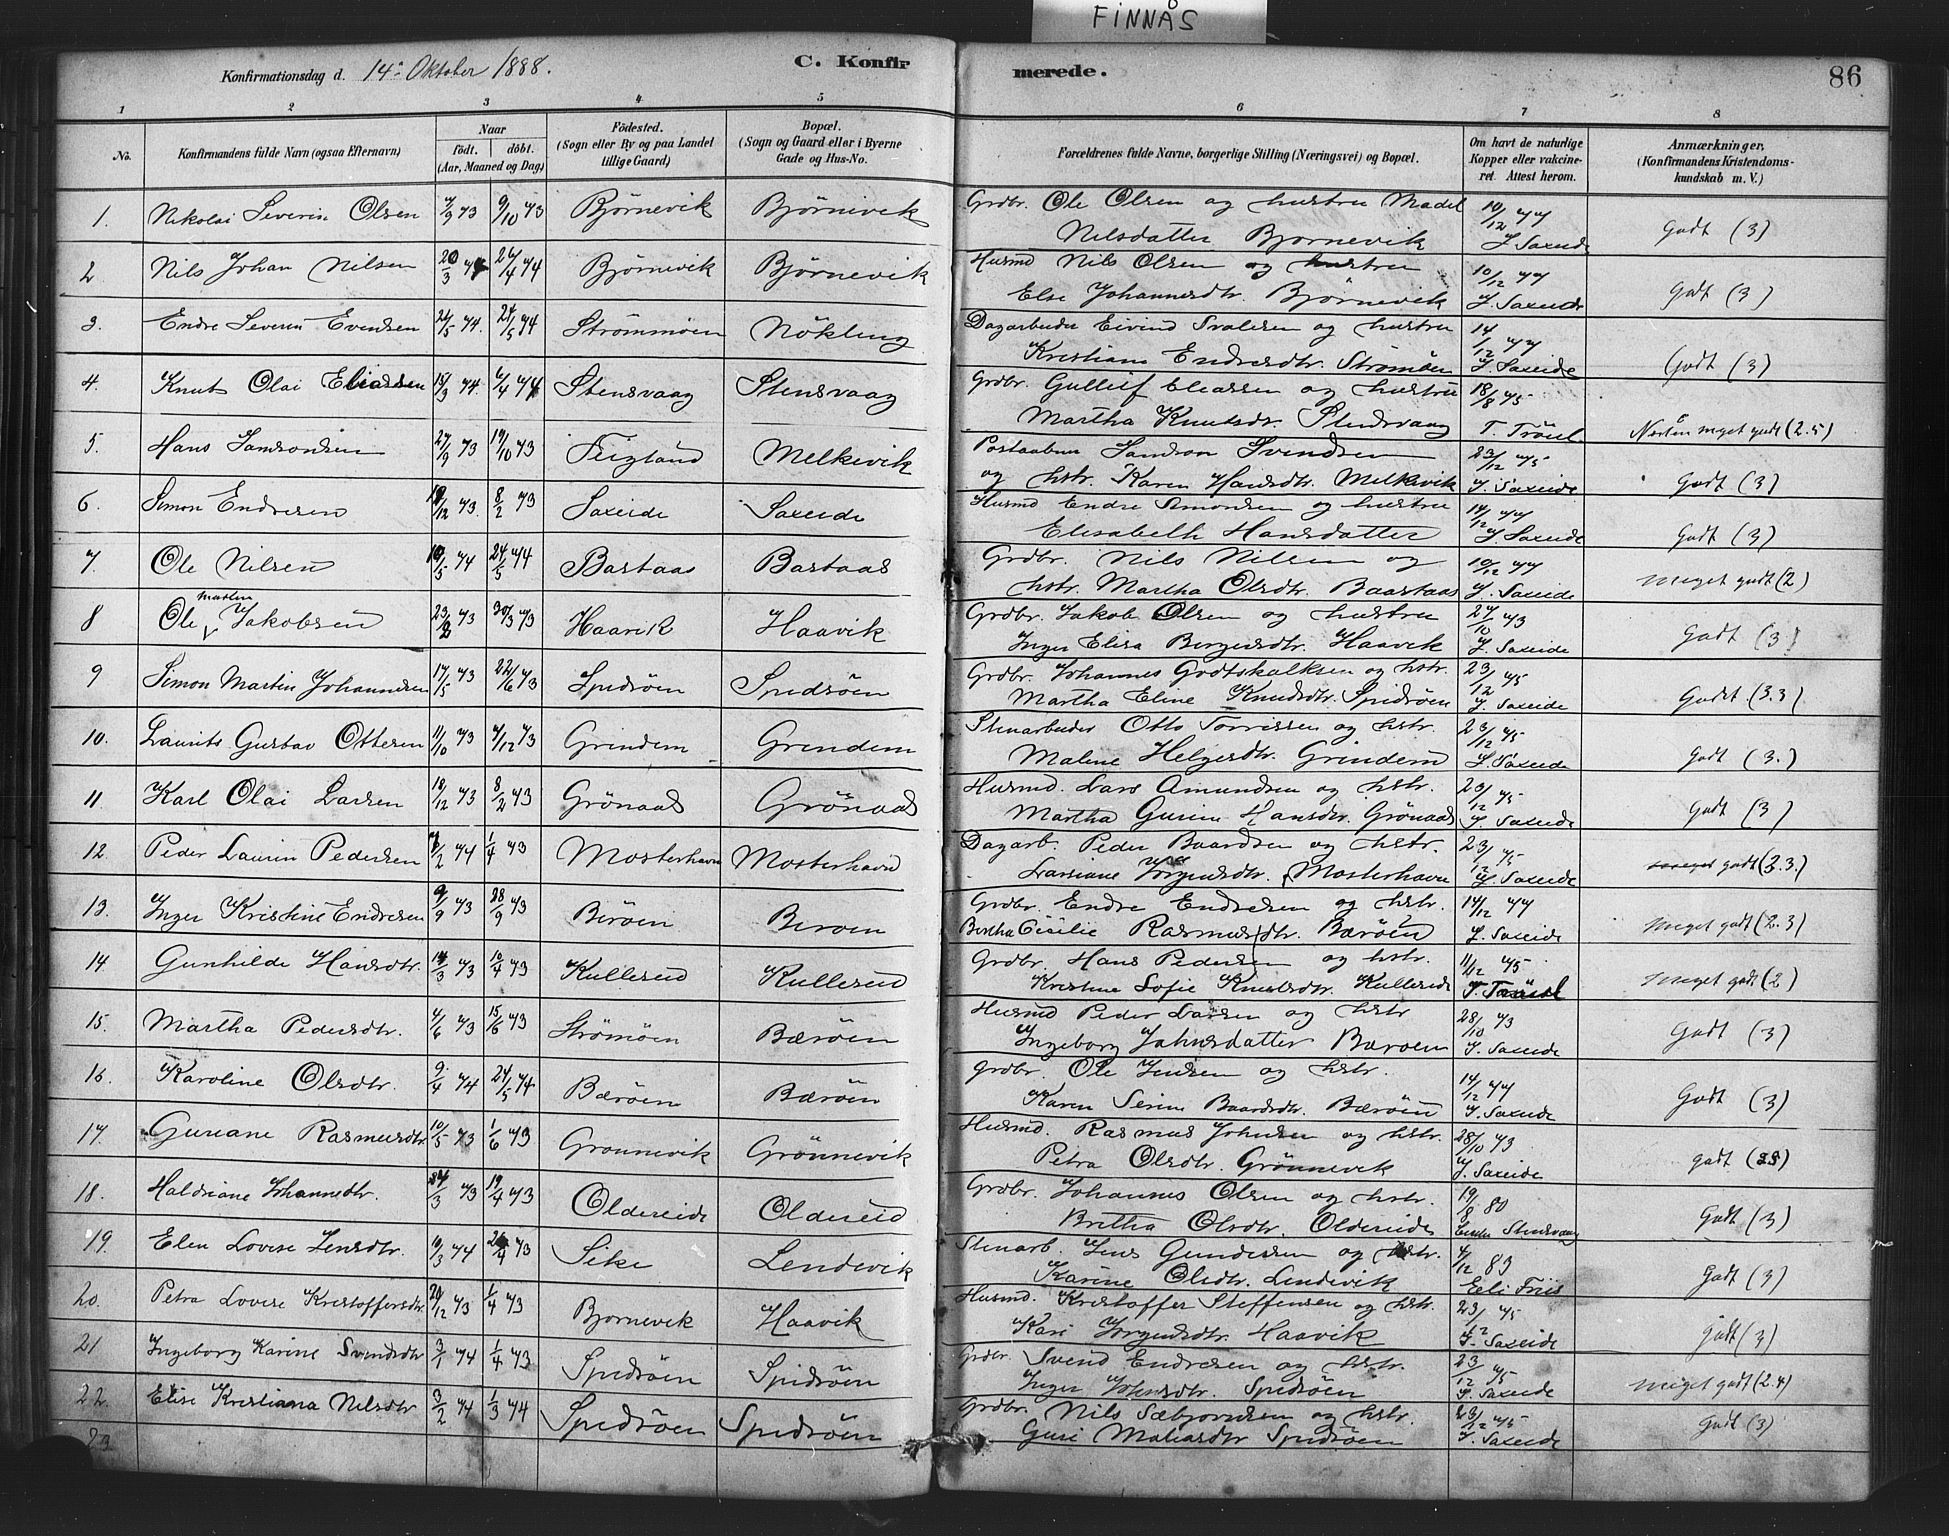 FINNÅS
Konfirmationsdag d. 14de Oktober 1888.
C. Konfirmerede.
86
1 2 3 4 5 6 7 8
No.
Konfirmandens fulde Navn (ogsaa Efternavn)
Naar
født. døbt.
(Aar, Maaned og Dag)
Födested.
(Sogn eller By og paa Landet
tillige Gaard.)
Bopæl.
(Sogn og Gaard eller i Byerne
Gade og Hus-No.
Forældrenes fulde Navne, borgerlige Stilling (Næringsvei) og Bopæl.
Om havt de naturlige
Kopper eller vakcine-
ret. Attest herom.
Anmærkninger,
(Konfirmandens Kristendoms-
kundskab m. V.)
1. Nikolai Severin Olsen 7/9 73 9/10 73 Bjørnevik Bjørnevik Grdbr. Ole Olsen og hustru Madel 10/12 77 Godt (3)
Nilsdatter Bjørnevik J. Saxeide
2 Nils Johan Nilsen 20/3 74 26/4 74 Bjørnevik Bjørnevik Husmd Nils Olsen og hustru 10/12 77 Godt (3)
Else Johannesdtr. Bjørnevik J. Saxeide
3. Endre Severin Evensen 74. 74 Strømmøen Nökling Dagarbeider Eivind og hustru 14/12 77 Godt (3)
Kristiane Endresdtr. Strømöen J. Saxeide
4. Knut Olai Eliassen 15/3 74. 6/4 74 Stensvaag Stensvaag Grdbr. Gulleif Eliassen og hustru 18/8 75 Næsten meget godt (2.5)
Martha Knutsdr. Stensvaag T. Tröul
5. Hans Samsonsen 27/9 73 19/10 73 Feigland Melkevik Postaabner Samson Svendsen 23/12 75 Godt (3)
og hstr. Karen Hansdtr. Melkevik J. Saxeide
6. Simon Endresen 73. 8/2 73 Saxeide Saxeide Husmd Endre Simonsen og hustru 14/12 77 Godt (3)
Elisabeth Hansdatter J. Saxeide
7 Ole Nilsen 10/5 74 24/5 74 Bastaas Bastaas Grdbr. Nils Nilsen og 10/12 77 meget godt (2)
hstr. Martha Olsdtr. Baastaas J. Saxeide
8 Ole Martin Jakobsen 23/2 73 30/3 73 Haavik Haavik Grdbr. Jakob Olsen og hustru 27/10 73 Godt (3)
Inger Elisa Borgersdtr. Haavik J. Saxeide
9 Simon Martin Johannesen 17/5 73 22/6 73 Spidsøen Spidsøen Grdbr. Johannes Godtskalksen og hstr. 23/12 75 Godt (3.3)
Martha Eline Knudsdtr. Spidsøen J. Saxeide
10. Laurits Gustav Ottesen 11/10 73 7/12 73 Grindem Grindem Stenarbeider Otto Torrissen og hstr. 23/12 75 Godt (3.)
Malene Helgesdtr. Grindem J. Saxeide
11. Karl Olai Larsen 18/12 73 8/2 73 Grönaas Grönaas Husmd. Lars Amundsen og hstr. 23/12 75 Godt (3)
Martha Gurine Hansdtr. Grönaas J. Saxeide
12. Peder Laurin Pedersen 74 1/4 73 Mosterhavn Mosterhavn Dagarb. Peder Baardsen og hstr. 23/12 75 godt (2.3.)
Larsiane Jörgensdtr. Mosterhavn J. Saxeide
13. Inger Kristine Endresen 9/9 73 28/9 73 Beröen Beröen Grdbr. Endre Endresen og hstr. 14/12 77 Meget godt (2.3)
Bertha Cicilie Rasmusdtr. Bæröen J. Saxeide
14. Gunhilde Hansdtr. 73 10/4 73 Kulleseid Kulleseid Grdbr. Hans Pedersen og hstr. 11/12 75 Meget godt (2)
Kristine Sofie Knutsdtr. Kulleseid T. Tröul
15. Martha Pedersdtr. 4/6 73 15/6 73 Strømöen Bæröen Husmd Peder Larsen og hstr 28/10 73 Godt (3)
Ingeborg Johnsdatter Bæröen J. Saxeide
16. Karoline Olsdtr. 9/4 74 24/5 74 Bæröen Bæröen Grdbr. Ole Jensen og hstr. 14/12 77 Godt (3)
Karen Serine Baardsdtr. Bæröen J. Saxeide
17. Guriane Rasmusdtr 10/5 73 1/6 73 Grønnevik Grönnevik Husmd. Rasmus Johnsen og hstr. 28/10 73 godt
Petra Olsdtr. Grönnevik J. Saxeide
18. Haldriane Johannesdtr. 73 19/4 73 Oldereide Oldereid Grdbr. Johannes Olsen og hstr. 19/8 80 Godt (3)
Britha Olsdtr. Oldereide Endre Stensvaag
19. Elen Lovise Jensdtr. 19/3 74 73 Sike Lendevik Stenarb. Jens Gundersen og hstr. 4/12 83 Godt (3)
Karine Olsdtr. Lendevik Eli Friis
20. Petra Lovise Kristoffersdtr. 20/12 73 1/4 73 Bjørnevik Haavik Husmd. Kristoffer Steffensen og hstr. 23/12 75 godt (3)
Kari Jørgensdtr. Haavik J. Saxeide
21 Ingeborg Karine Svendsdtr 3/1 74 1/4 73 Spidsøen Spidsøen Grdbr. Svend Endresen og hstr. 23/12 75 meget godt (2.4)
Inger Spidsøen J. Saxeide
22. Elise Kristiana Nilsdtr 3/2 74 1/3 74 Spidsøen Spidsøen Grdbr. Nils Sæbjørnsen og hstr. 23/12 75 Godt (3)
Guri Spidsøen J. Saxeide
23